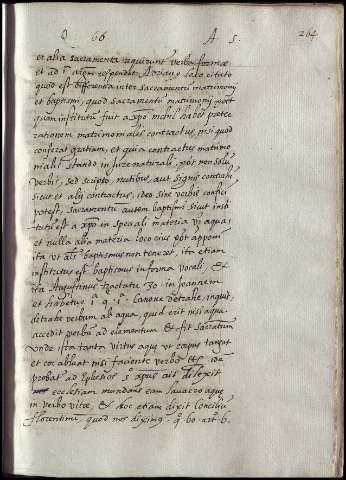 Q 66 A 5. 264
et alia sacramenta requirunt verba formae
et ad i respondet Adrian9 loco citato
quod est differentia inter sacramentu matrimonij
et baptismi, quod sacramentu matrimonij
quam institutu fuit a xpo nihil habet praeter
rationem matrimonialis contractus, nisi quod
conferat gratiam, et quia contractus matrimo
nialis stando in jure naturali, pot non solu
verbis, sed scripto, nutibus, aut signis contrahi
sicut et alij contractus, ideo sine verbis confici
potest, sacramentu autem baptismi sicut insti
tutu est a xpo in speciali materia ut aqua,
et nulla alia materia loco eius pot apponi
ita ut baptismus non teneret, ita etiam
institutus est baptismus in forma vocali, et
ita Augustinus tractatu 30 in Joannem
et habetur canone detrahe, inquit,
detrahe verbum ab aqua, quid erit nisi aqua
accedit verbu ad elementum et fit sacratum
unde ista tanta virtus aque ut corpus tangat
et cor abluat nisi faciente verbo et
probat ad Ephesios 5 apus ait dilexit
ecclesiam mundans eam lavacro aque
in verbo vitae, et hoc etiam dixit Conciliu
florentinu, quod nos diximus q 60 art 6.